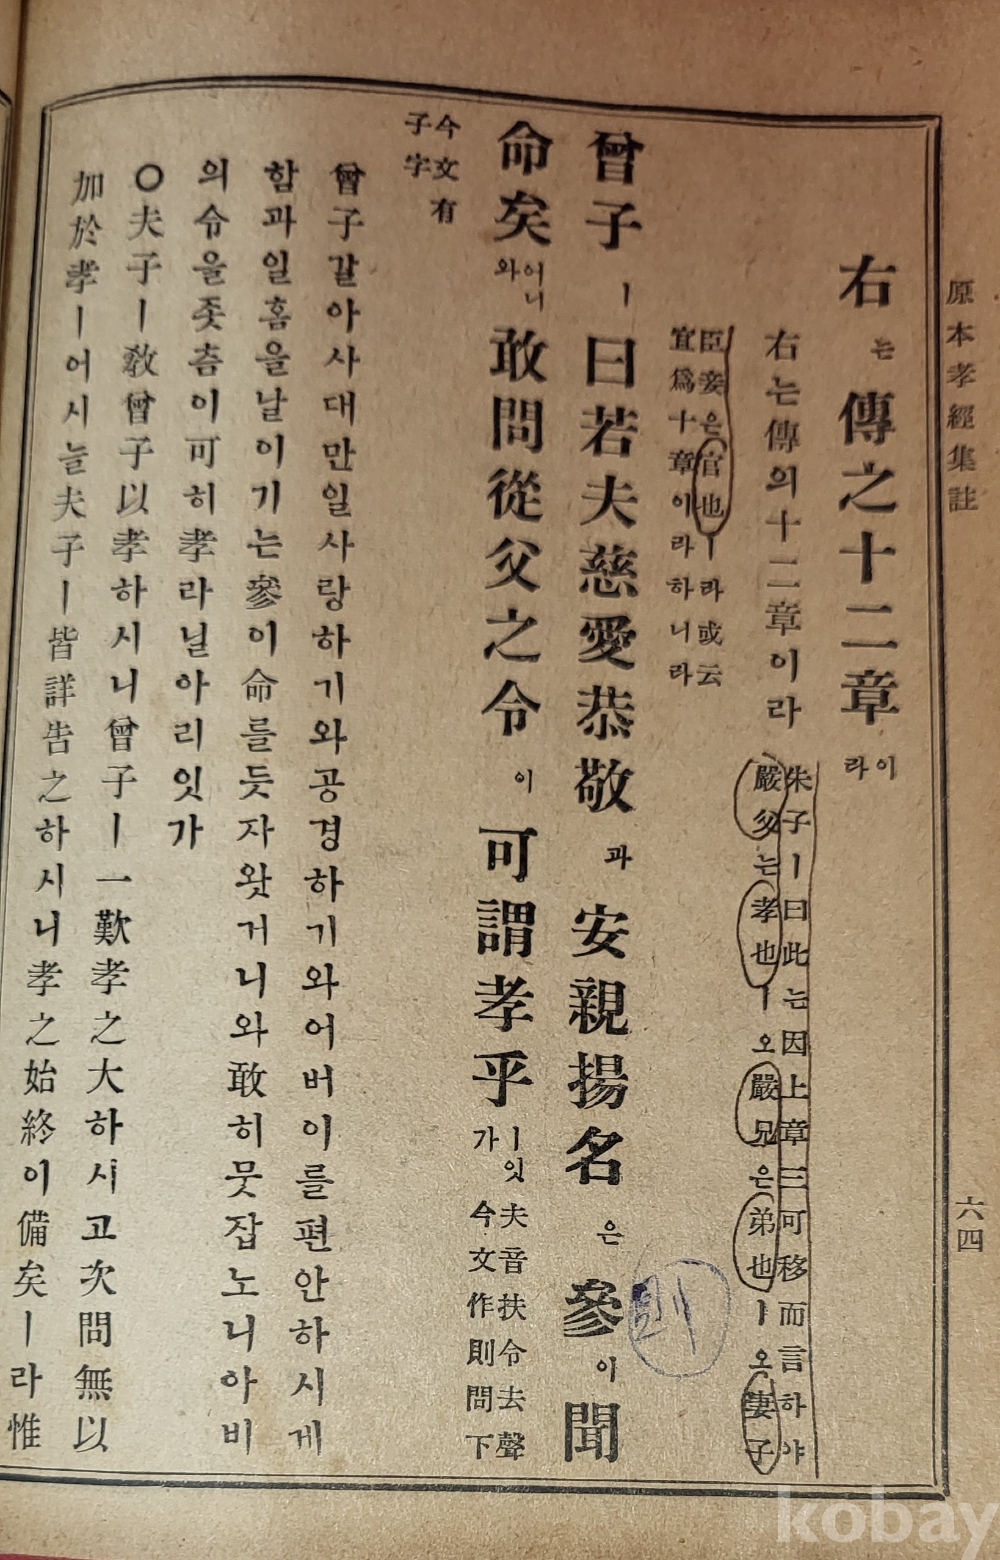 原本孝經集註
六四
右는傳之十二章이라
右는傳의十二章이라
朱子ㅣ曰此는因上章三可移而言하야
嚴父는孝也ㅣ오嚴兄은弟也ㅣ오妻子
臣妾은官也ㅣ라或云
宜爲十章이라하니라
曾子ㅣ曰若夫慈愛恭敬과安親揚名은參이聞
則
命矣어니와敢問從父之令이可謂孝乎ㅣ잇가
夫音扶令去聲
今文作則問下
今文有
子字
曾子갈아사대만일사랑하기와공경하기와어버이를편안하시게
함과일홈을날이기는參이命를듯자왓거니와敢히뭇잡노니아비
의令을좃츰이可히孝라닐아리잇가
○夫子ㅣ敎曾子以孝하시니曾子ㅣ一歎孝之大하시고次問無以
加於孝ㅣ어시늘夫子ㅣ皆詳告之하시니孝之始終이備矣ㅣ라惟
kobay